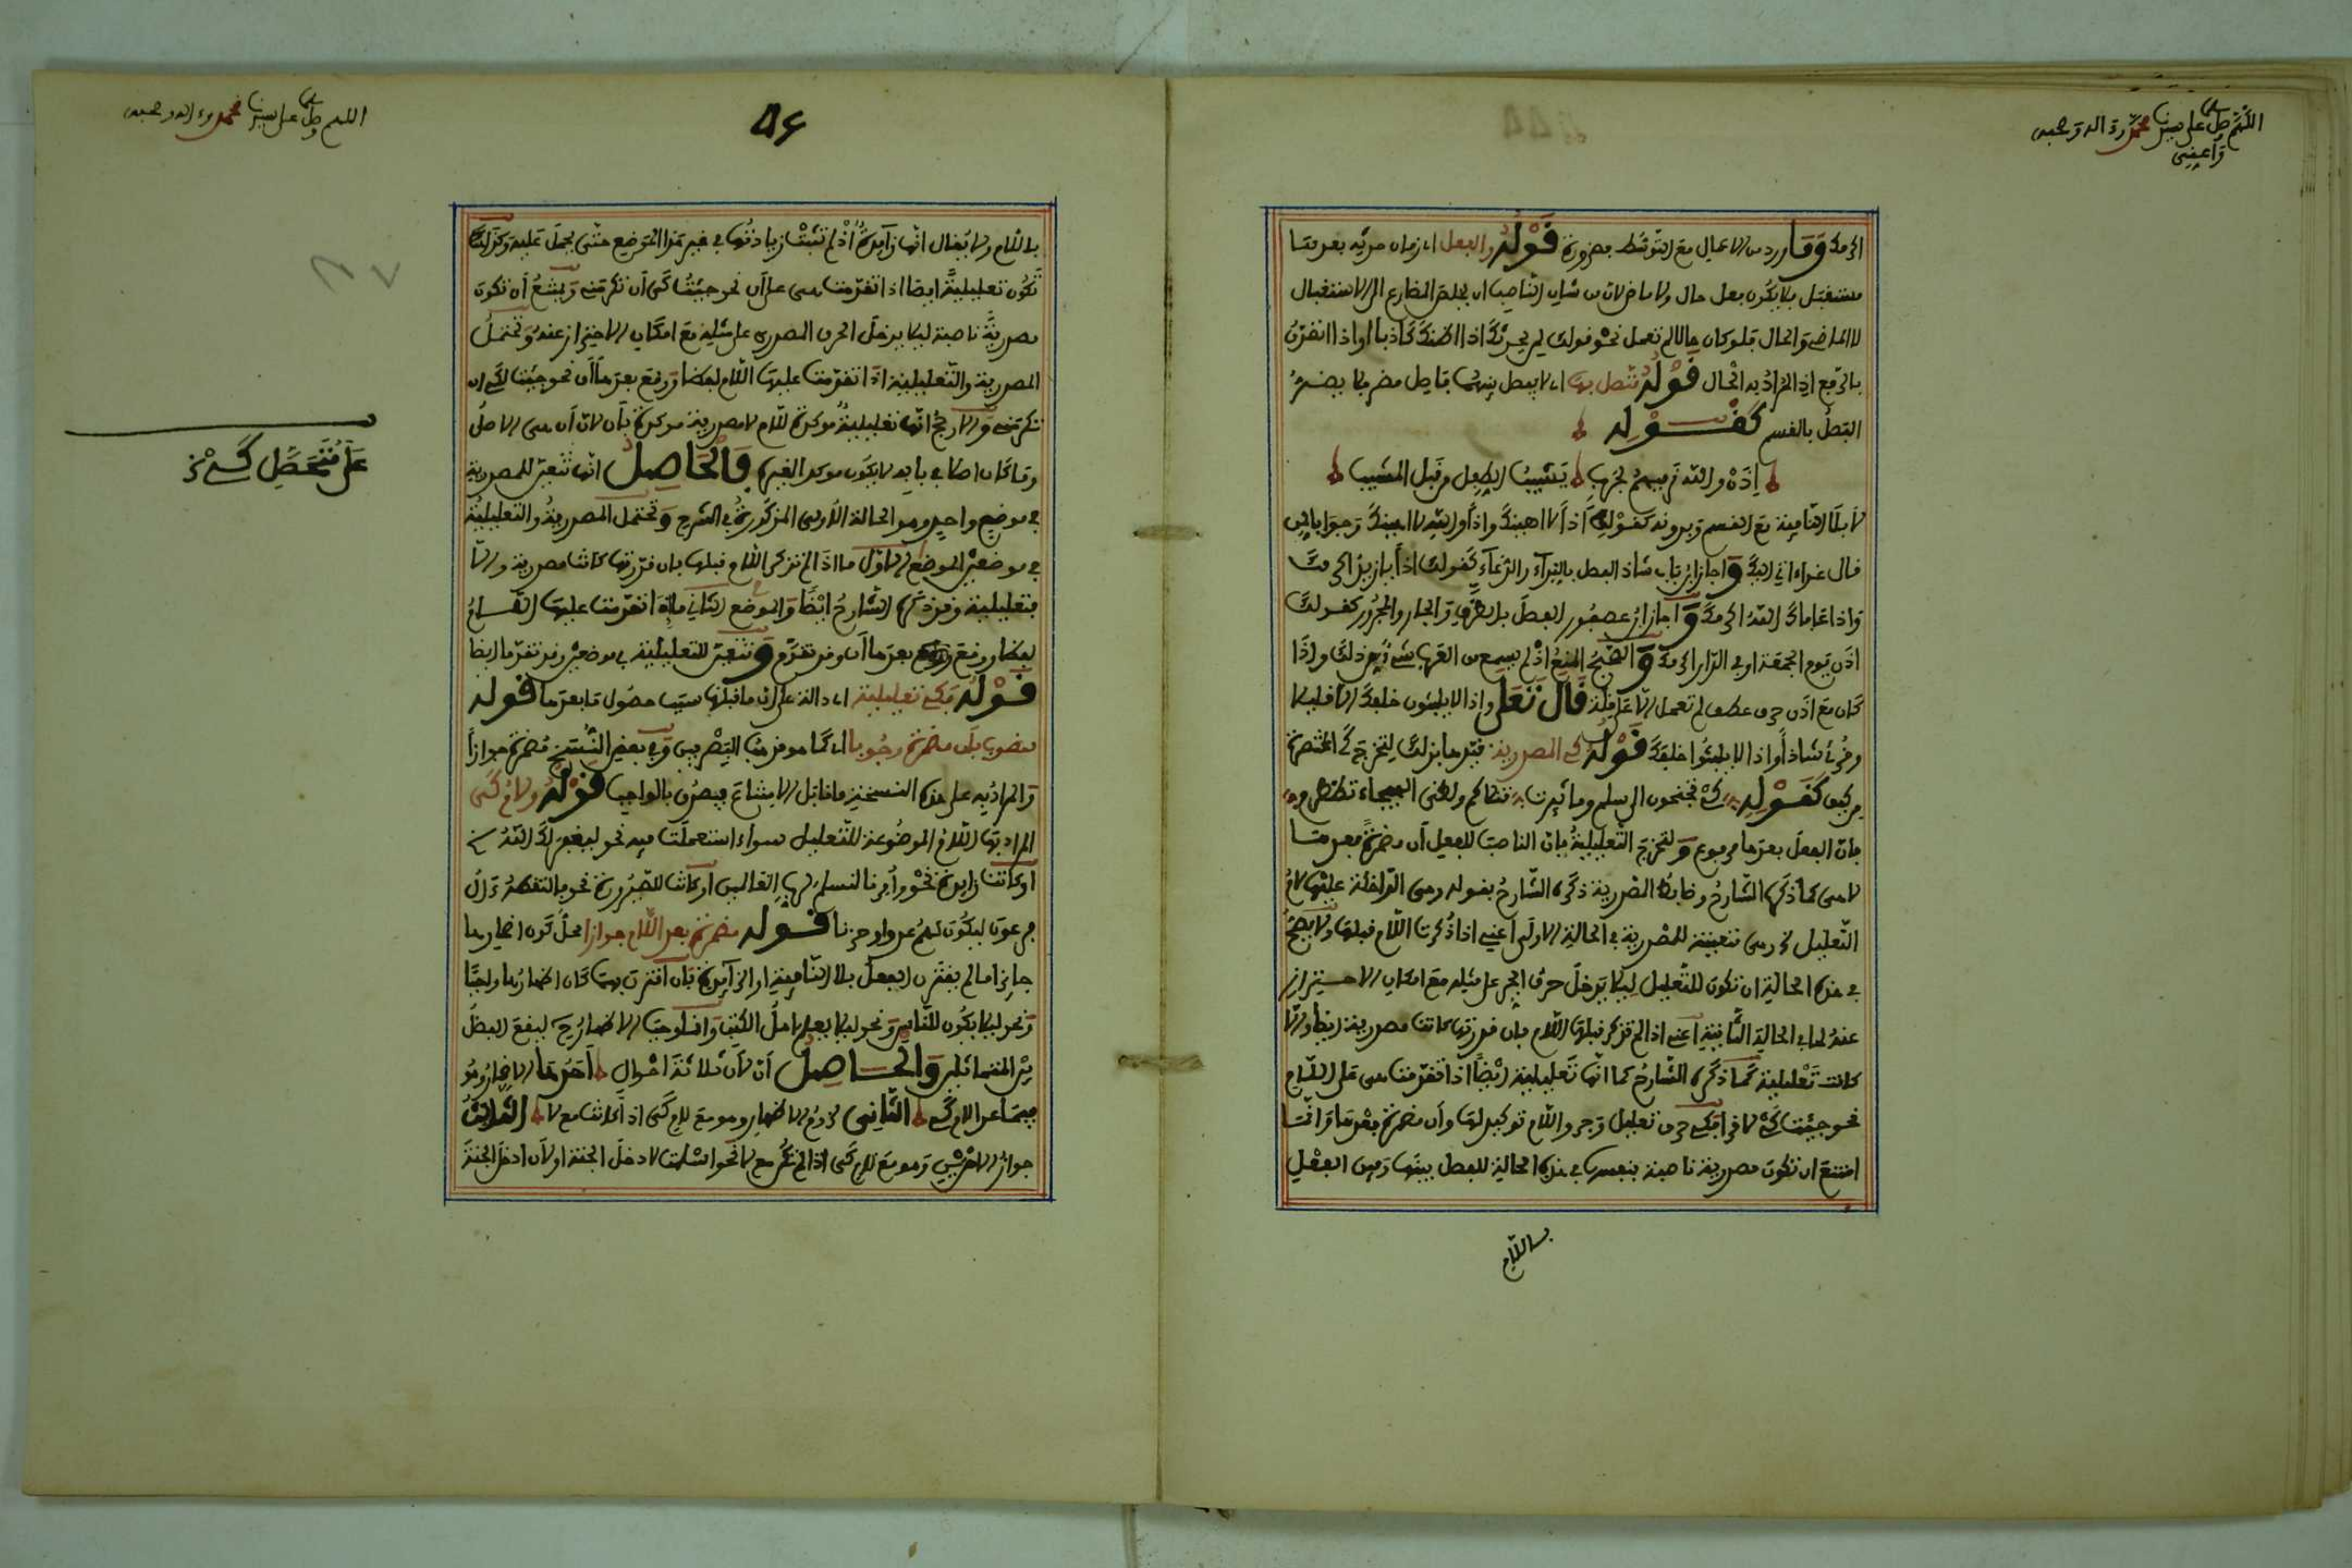 اللهم صل على سيدنا محمد وءاله وصحبه
وأعني
اكرمك وما ورد من الاعمال مع التوسط بضرورة قوله والفعل اى زمان حدثه بعدها
مستقبل فلا يكون بعل حال ولا ماض لان من شان الناصب ان يخلص المضارع الى الاستقبال
لا الماضي والحال فلو كان حالا لم تعمل نحو قولك لمن يحدثك اذا اظنك كاذبا او اذا انفردت
بالرفع اذ المراد به الحال قوله متصل بها اى لا يفصل بينهما فاصل مضر فلا يضر
الفصل بالقسم كقوله
إذن والله نرميهم بحرب يشيب الطفل من قبل المشيب
لا بلا النافية مع القسم وبدونه كقولك اذا لا اهينك واذا والله لا اهينك وجوابا لمن
قال غدا ءاتي اليك وأجاز ابن باب شاذ الفصل بالنداء والدعاء كقولك اذا يا زيد اكرمك
واذا عافاك الله اكرمك وأجاز ابن عصفور الفصل بالظرف والجار والمجرور كقولك
اذن يوم الجمعة او في الدار اكرمك والصحيح المنع اذ لم يسمع من العرب شيء من ذلك واذا
كان مع اذن حرف عطف لم تعمل الا على قلة قال تعلى وإذا لا يلبثون خلفك الا قليلا
وقرئ شاذا واذا لا يلبثوا خلفك قوله كي المصدرية قيدها بذلك ليخرج كي المختصرة
من كيف كقوله كي تجنحون الى سلم وما ثئرت قتلاكم ولظى الهيجاء تضطرم
فان الفعل بعدها مرفوع ولتخرج التعليلية فان الناصب للفعل أن مضمرة بعدها
لا هى كما ذكره الشارح وضابط المصدرية ذكره الشارح بقوله وهى الداخلة عليها لام
التعليل وهى متعينة للمصدرية في الحالة الاولى أعني اذا ذكرت اللام قبلها ولا يصح
في هذه الحالة ان تكون للتعليل ليلا يدخل حرف الجر على مثله مع امكان الاحتراز
عنه اما في الحالة الثانية أعني اذا لم تذكر قبلها اللام فان قدرتها كانت مصدرية ايضا والا
كانت تعليلية كما ذكره الشارح كما انها تعليلية ايضا اذا تقدمت هى على اللام
نحو جئت كي لاقرأ فكي حرف تعليل وجر واللام توكيد لها وأن مضمرة بعدها وانما
امتنع ان تكون مصدرية ناصبة بنفسها في هذه الحالة للفصل بينها وبين الفعل
باللام
اللهم صل على سيدنا محمد وءاله وصحبه
باللام ولا يقال انها زايدة اذ لم تثبت زيادتها في غير هذا الموضع حتى يحمل عليه وكذلك
تكون تعليلية ايضا اذا تقدمت هى على أن نحو جئت كي أن تكرمني ويمتنع أن تكون
مصدرية ناصبة ليلا يدخل الحرف المصدري على مثله مع امكان الاحتراز عنه وتحتمل
المصدرية والتعليلية اذا تقدمت عليها اللام لفظا ووقع بعدها أن نحو جئت لكي ان
تكرمني والارجح انها تعليلية موكدة للام لا مصدرية موكدة بأن لان أن هى الاصل
وما كان اصلا في بابه لا يكون موكدا لغيره والحاصل انها تتعين للمصدرية
في موضع واحد وهو الحالة الاولى المذكورة في الشرح وتحتمل المصدرية والتعليلية
في موضعين الموضع الاول ما اذا لم تذكر اللام قبلها فان قدرتها كانت مصدرية والا
فتعليلية وقد ذكره الشارح ايضا والموضع الثاني ما اذا تقدمت عليها اللام
لفظا ووقع بعدها أن وقد تقدم وتتعين للتعليلية في موضعين وقد تقدما ايضا
قوله فكي تعليلية اى دالة على ان ما قبلها سبب حصول ما بعدها قوله
منصوب بأن مضمرة وجوبا اى كما هو مذهب البصريين وفي بعض النسخ مضمرة جوازا
والمراد به على هذه النسخة ما قابل الامتناع فيصدق بالواجب قوله ولام كي
المراد بها اللام الموضوعة للتعليل سواء استعملت فيه نحو ليغفر لك الله
او كانت زايدة نحو وأمرنا لنسلم لرب العالمين او كانت للصيرورة نحو فالتقطه ءال
فرعون ليكون لهم عدوا وحزنا قوله مضمرة بعد اللام جوازا محل كون اضمارها
جايزا ما لم يقترن الفعل بلا النافية او الزايدة فان اقترن بها كان اظهارها واجبا
نحو ليلا يكون للناس ونحو ليلا يعلم اهل الكتب وانما وجب الاظهار ح ليقع الفصل
بين المتماثلين والحاصل أن لأن ثلاثة احوال أحدها الاضمار وهو
فيما عدا لام كي الثاني لزوم الاظهار وهو مع لام كي اذا كانت مع لا الثالث
جواز الامرين وهو مع لام كي اذا لم تكن مع لا نحو اسلمت لادخل الجنة او لأن ادخل الجنة